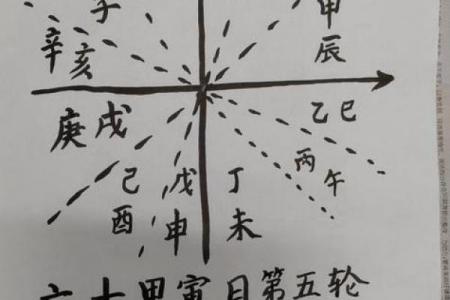 子
甲辰
辛亥
乙巳
庚戌
丙午
己酉
戊申
丁未
甲寅日第五轮